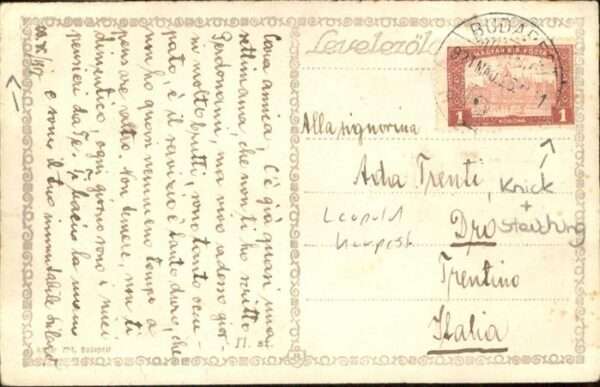 Levelezőla
BUDAP
MAGYAR KIR. POSTA
1
KORONA
1
Cara amica, C'è già quasi una
settimana, che non ti ho scritto
Perdonami, ma sono adesso gior
ni molto brutti, sono tanto occu-
pato, e il servizio è tanto duro, che
non ho quasi nemmeno tempo a
pensare altro. Non temere, non ti
dimentico, ogni giorno sono i miei
pensieri da Te. Ti bacio la mano
e sono il tuo immutabile
Alla signorina
Ada Trenti
Dro
Trentino
Italia
Knick
+
Leopold
Budapest